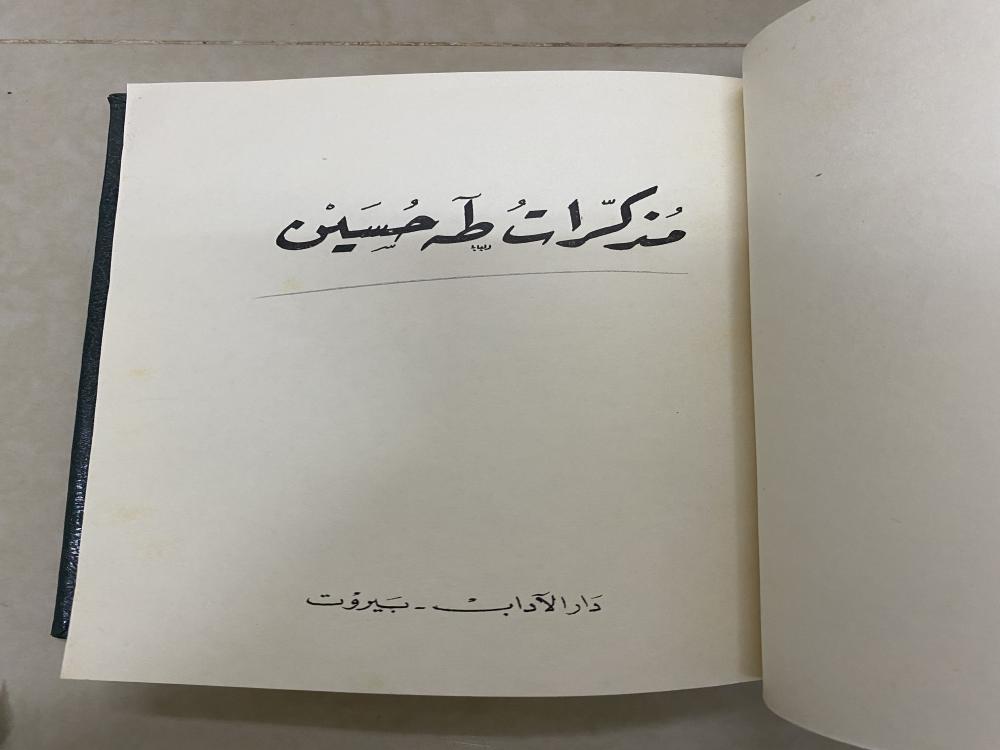 مُذكّراتُ طٰهٰ حُسَيْن
دَار الآدابْ - بَيرْوُت